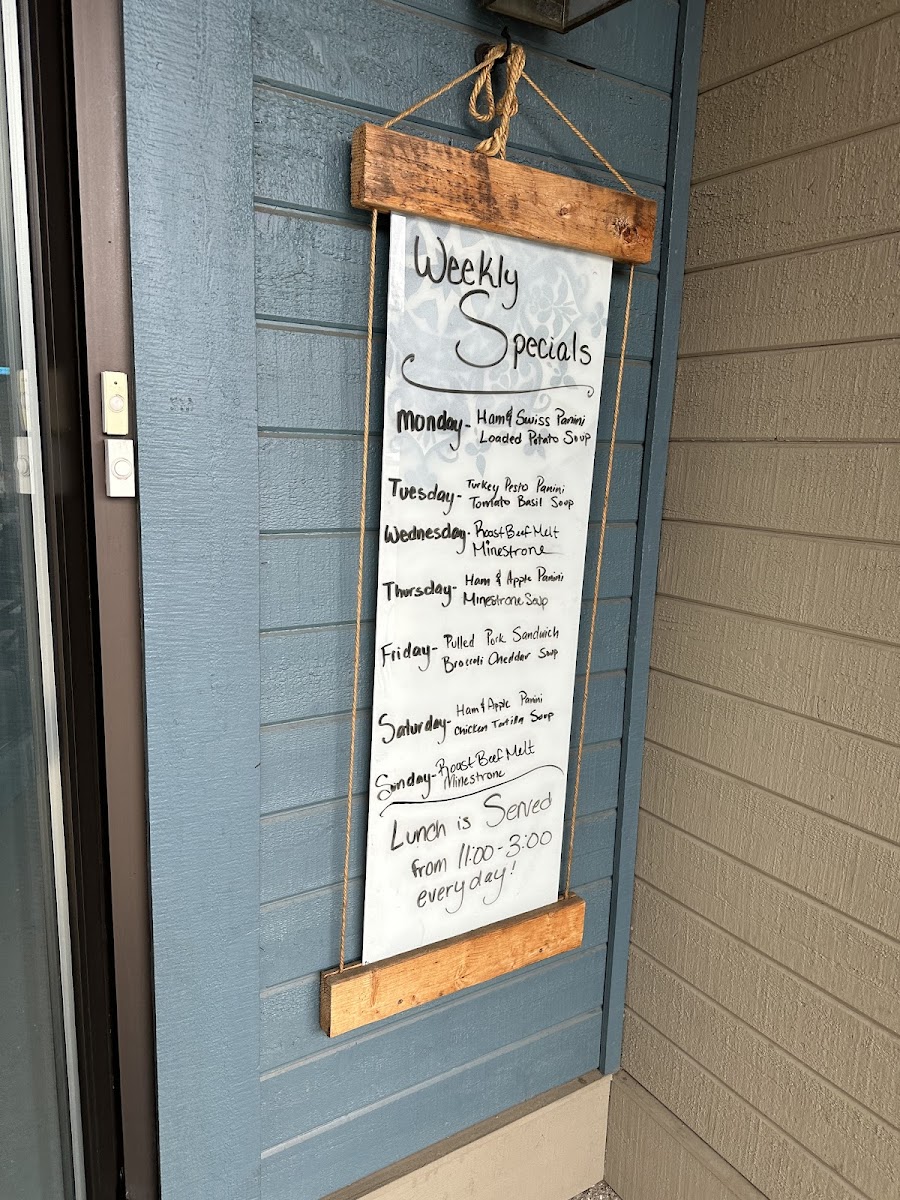 Weekly
Specials
Monday - Ham & Swiss Panini
Loaded Potato Soup
Tuesday - Turkey Pesto Panini
Tomato Basil Soup
Wednesday - Roast Beef Melt
Minestrone
Thursday - Ham & Apple Panini
Minestrone Soup
Friday - Pulled Pork Sandwich
Broccoli Cheddar Soup
Saturday - Ham & Apple Panini
Chicken Tortilla Soup
Sunday - Roast Beef Melt
Minestrone
Lunch is Served
from 11:00 - 3:00
everyday!